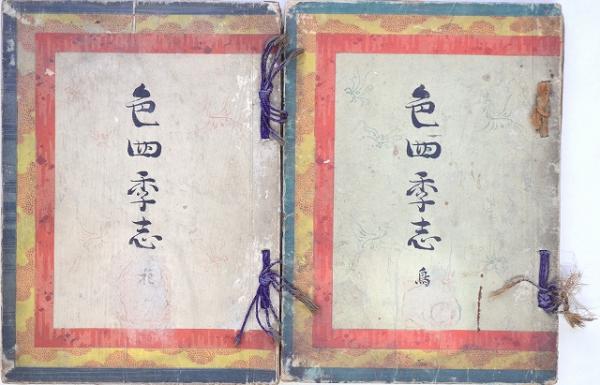 色四季志
花
色四季志
鳥